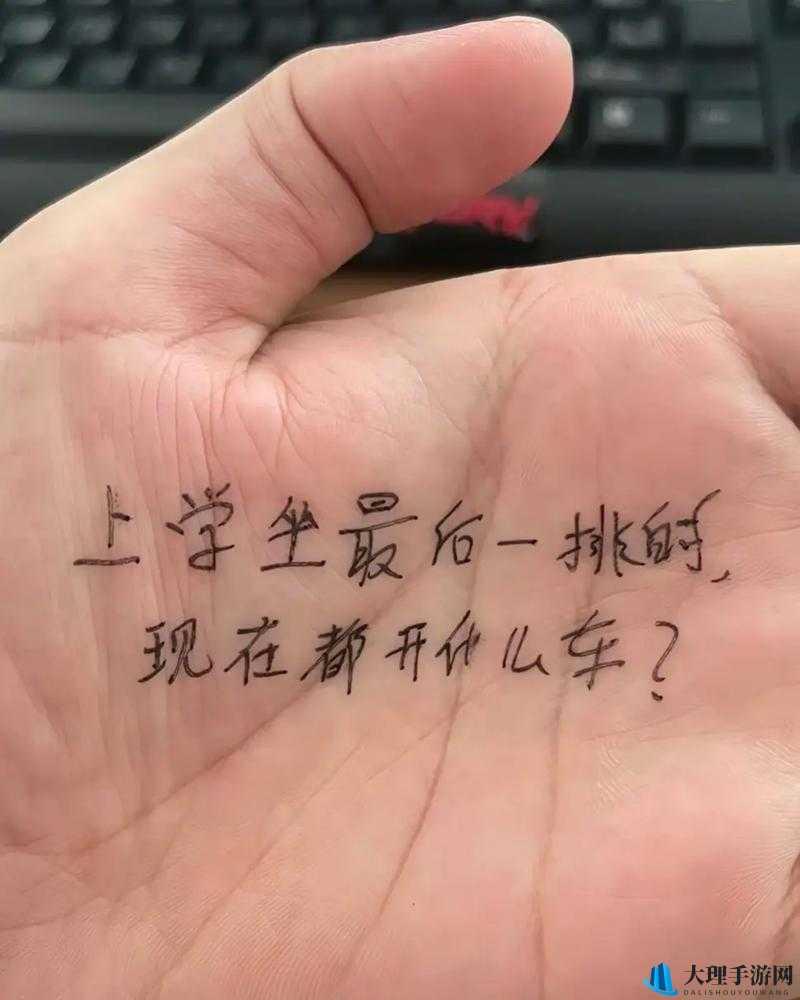 上学坐最后一排的,
现在都开什么车?
大理手游网
DALISHOUYOUWANG